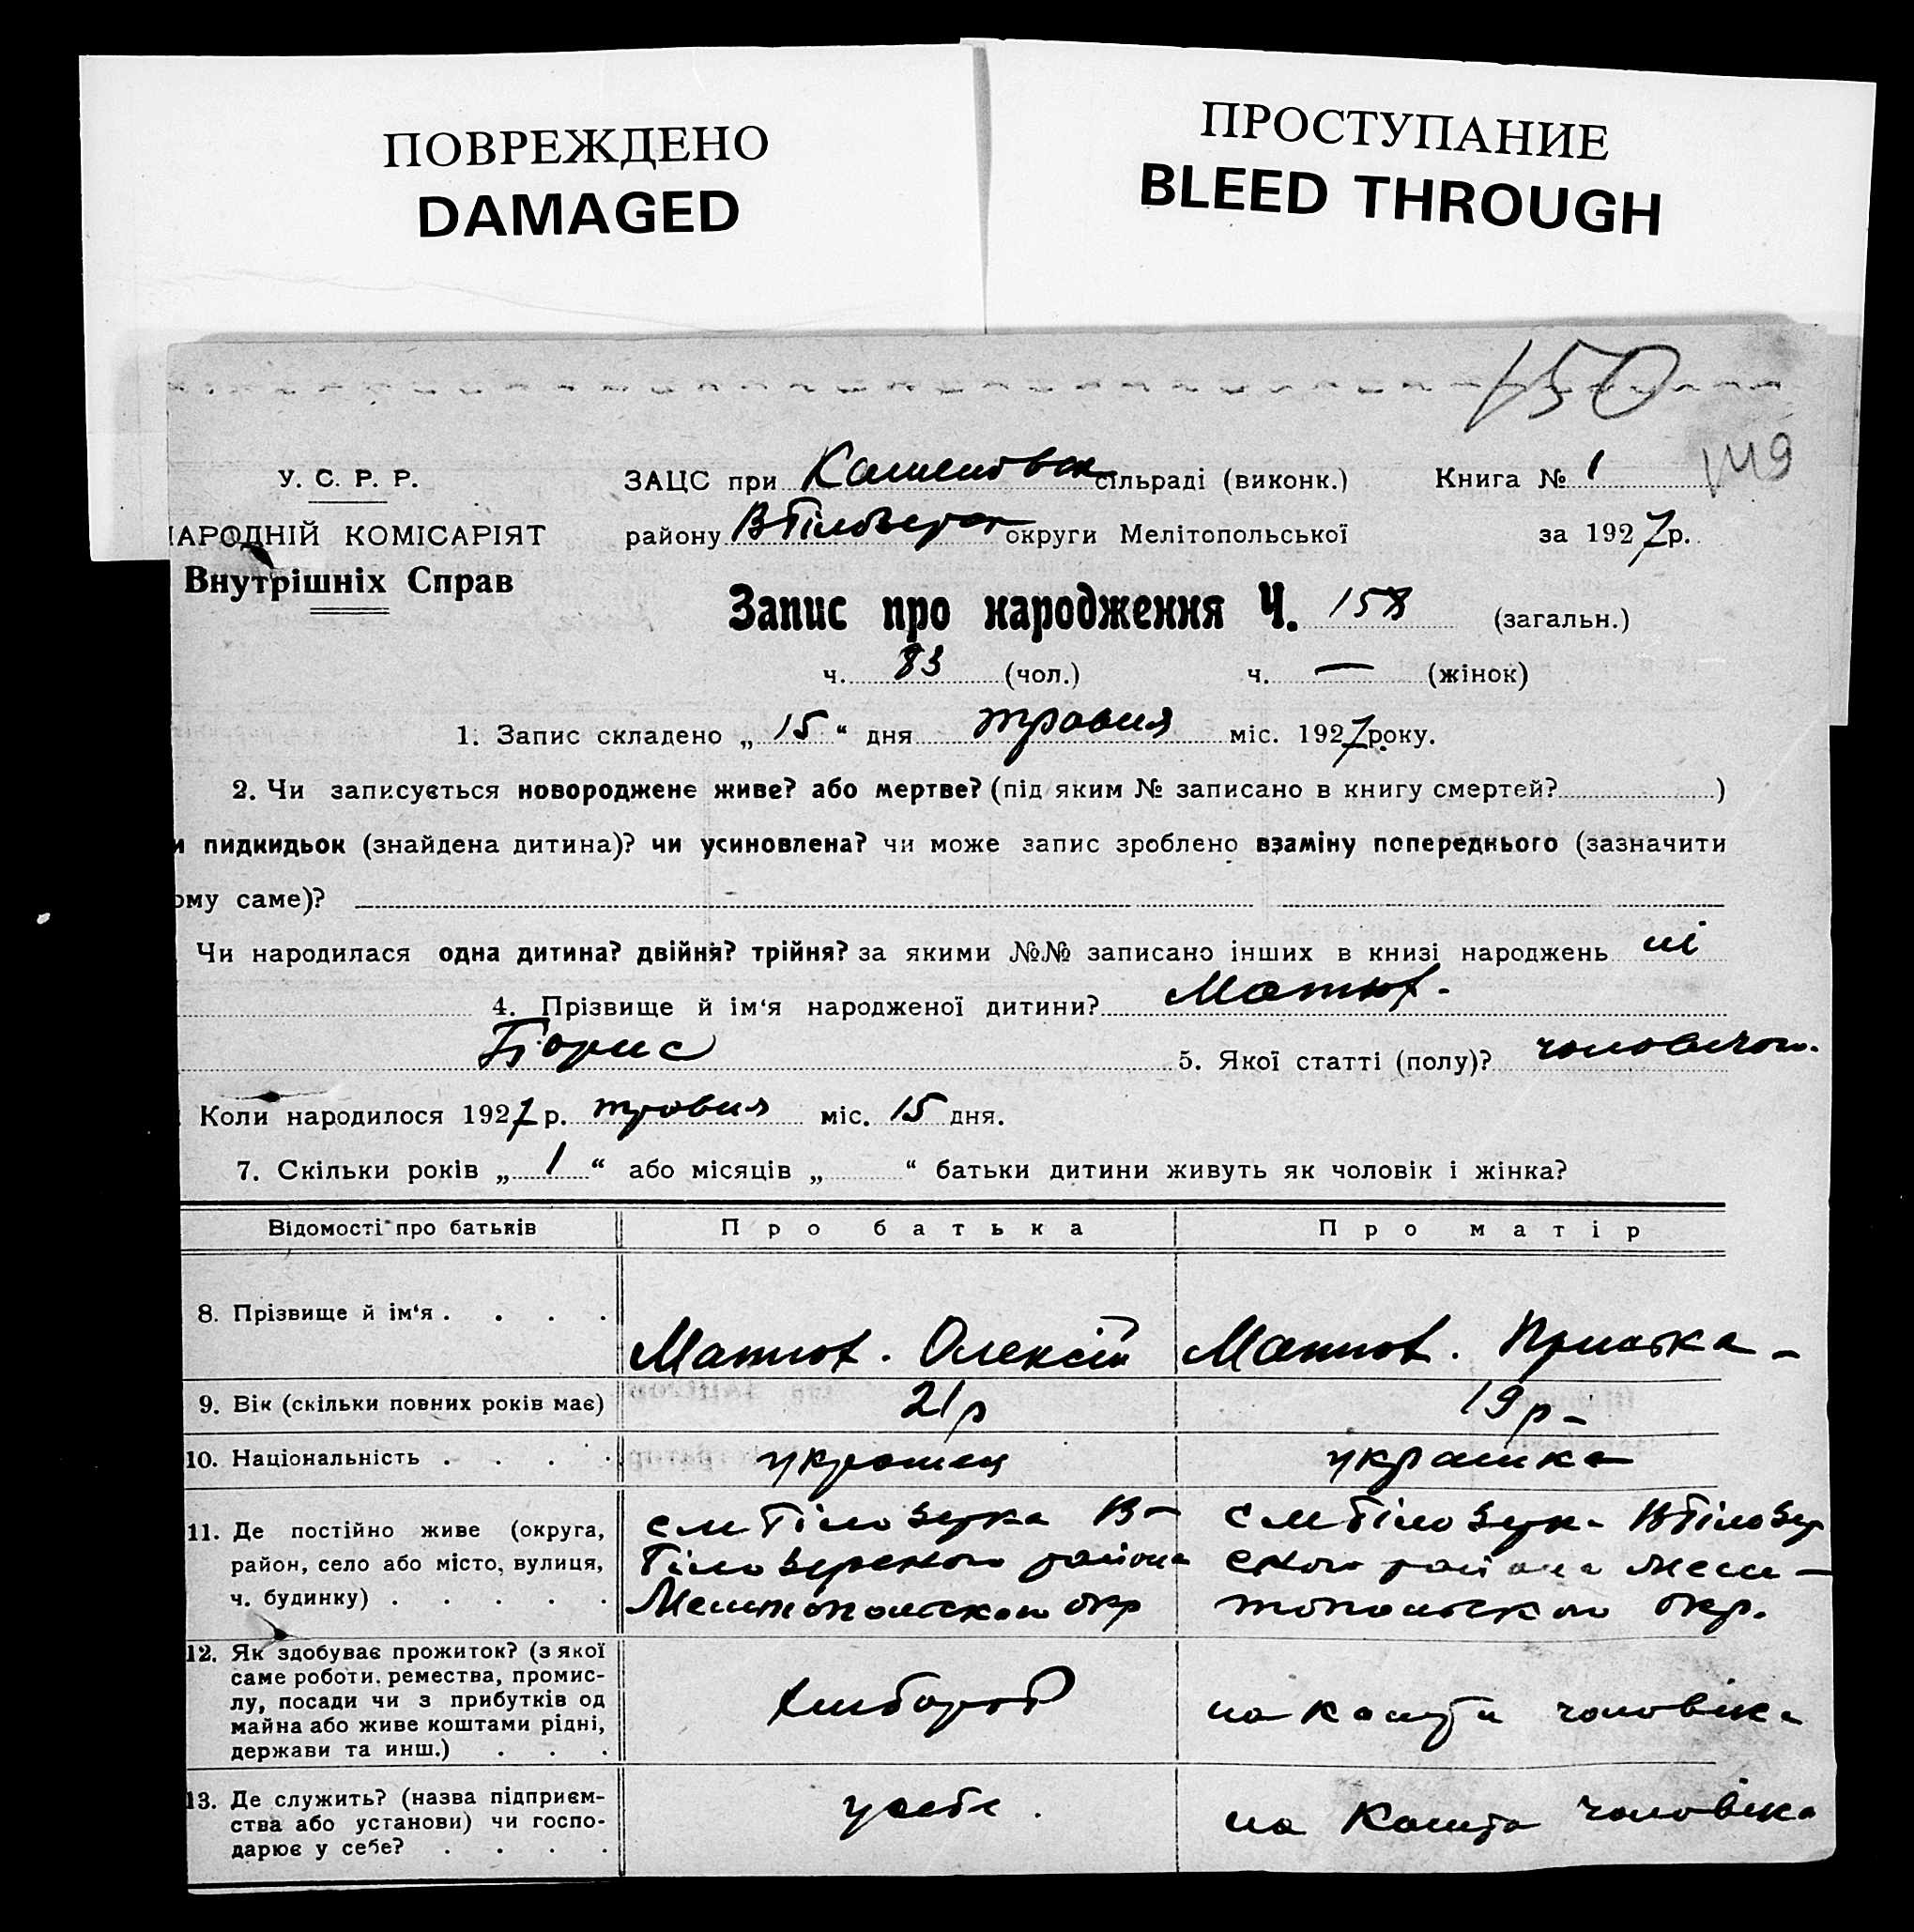 ПОВРЕЖДЕНО
DAMAGED
ПРОСТУПАНИЕ
BLEED THROUGH
150
149
У. С. Р. Р.
ЗАЦС при сільраді (виконк.) Книга № 1
АРОДНІЙ КОМІСАРІЯТ
району округи Мелітопольської за 1927 р.
Внутрішніх Справ
Запис про народження Ч. 158 (загальн.)
ч. 83 (чол.) ч. — (жінок)
1. Запис складено „ 15 “ дня травня міс. 1927 року.
2. Чи записується новороджене живе? або мертве? (під яким № записано в книгу смертей? )
и пидкидьок (знайдена дитина)? чи усиновлена? чи може запис зроблено взаміну попереднього (зазначити
ому саме)?
Чи народилася одна дитина? двійня? трійня? за якими №№ записано інших в книзі народжень ні
4. Прізвище й ім‘я народженої дитини?
Борис 5. Якої статті (полу)?
Коли народилося 1927 р. травня міс. 15 дня.
7. Скільки років „ 1 “ або місяців „ “ батьки дитини живуть як чоловік і жінка?
Відомості про батьків Про батька Про матір
8. Прізвище й ім‘я . . . . Олексій
9. Вік (скільки повних років має) 21 р 19 р -
10. Національність . . . . українец українка
11. Де постійно живе (округа,
район, село або місто, вулиця, района
ч. будинку) . . . . . окр окр.
12. Як здобуває прожиток? (з якої
саме роботи, ремества, промис-
лу, посади чи з прибутків од хлібороб на кошти чоловіка
майна або живе коштами рідні,
держави та инш.) . . .
13. Де служить? (назва підприєм-
ства або установи) чи госпо- у себе. на кошта чоловіка
дарює у себе? . . . .